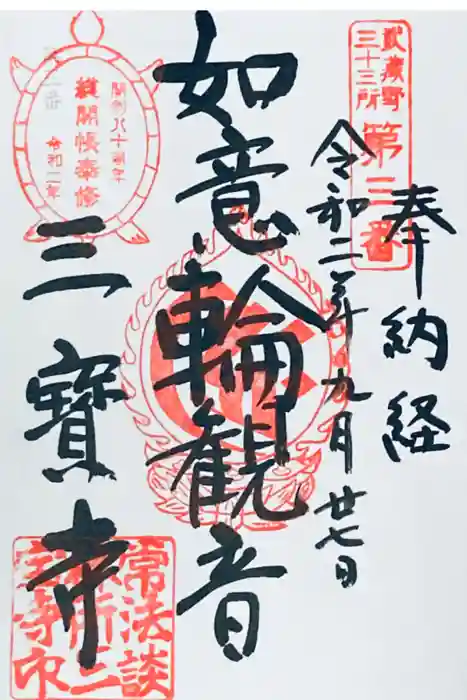 奉納経
武蔵野
三十三所
第三番
令和二年九月廿七日
如意輪観音
三寳寺
開創八十周年
総開帳奉修
令和二年
常法談
林所三
宝寺印